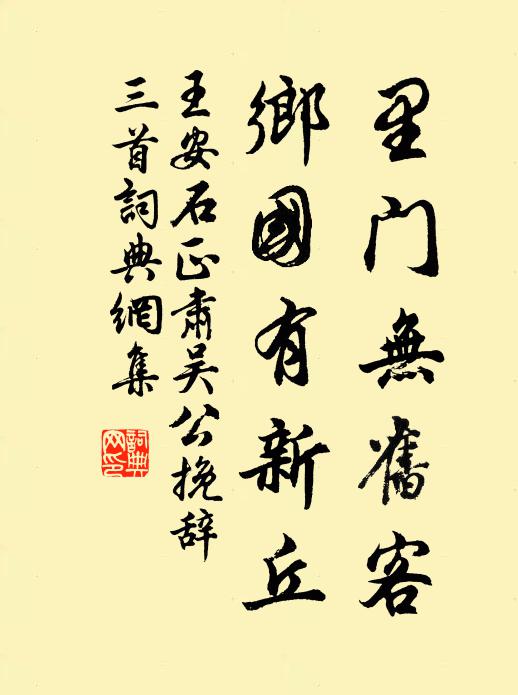 里門無舊客
鄉國有新丘
王安石正肅吴公挽辞
三首詞典網集
詞典網印